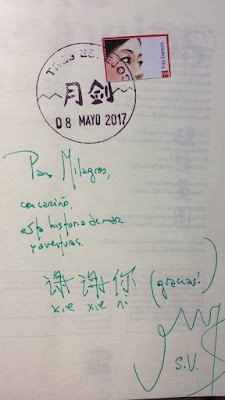 月剑
08 MAYO 2017
Para Milagros,
con cariño,
esta historia de mar
y aventuras.
谢谢你 (gracias!)
xie xie ni
S.V.